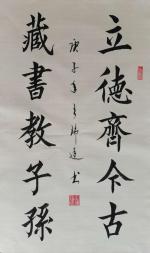 立德齊今古
藏書教子孫
庚子年
書